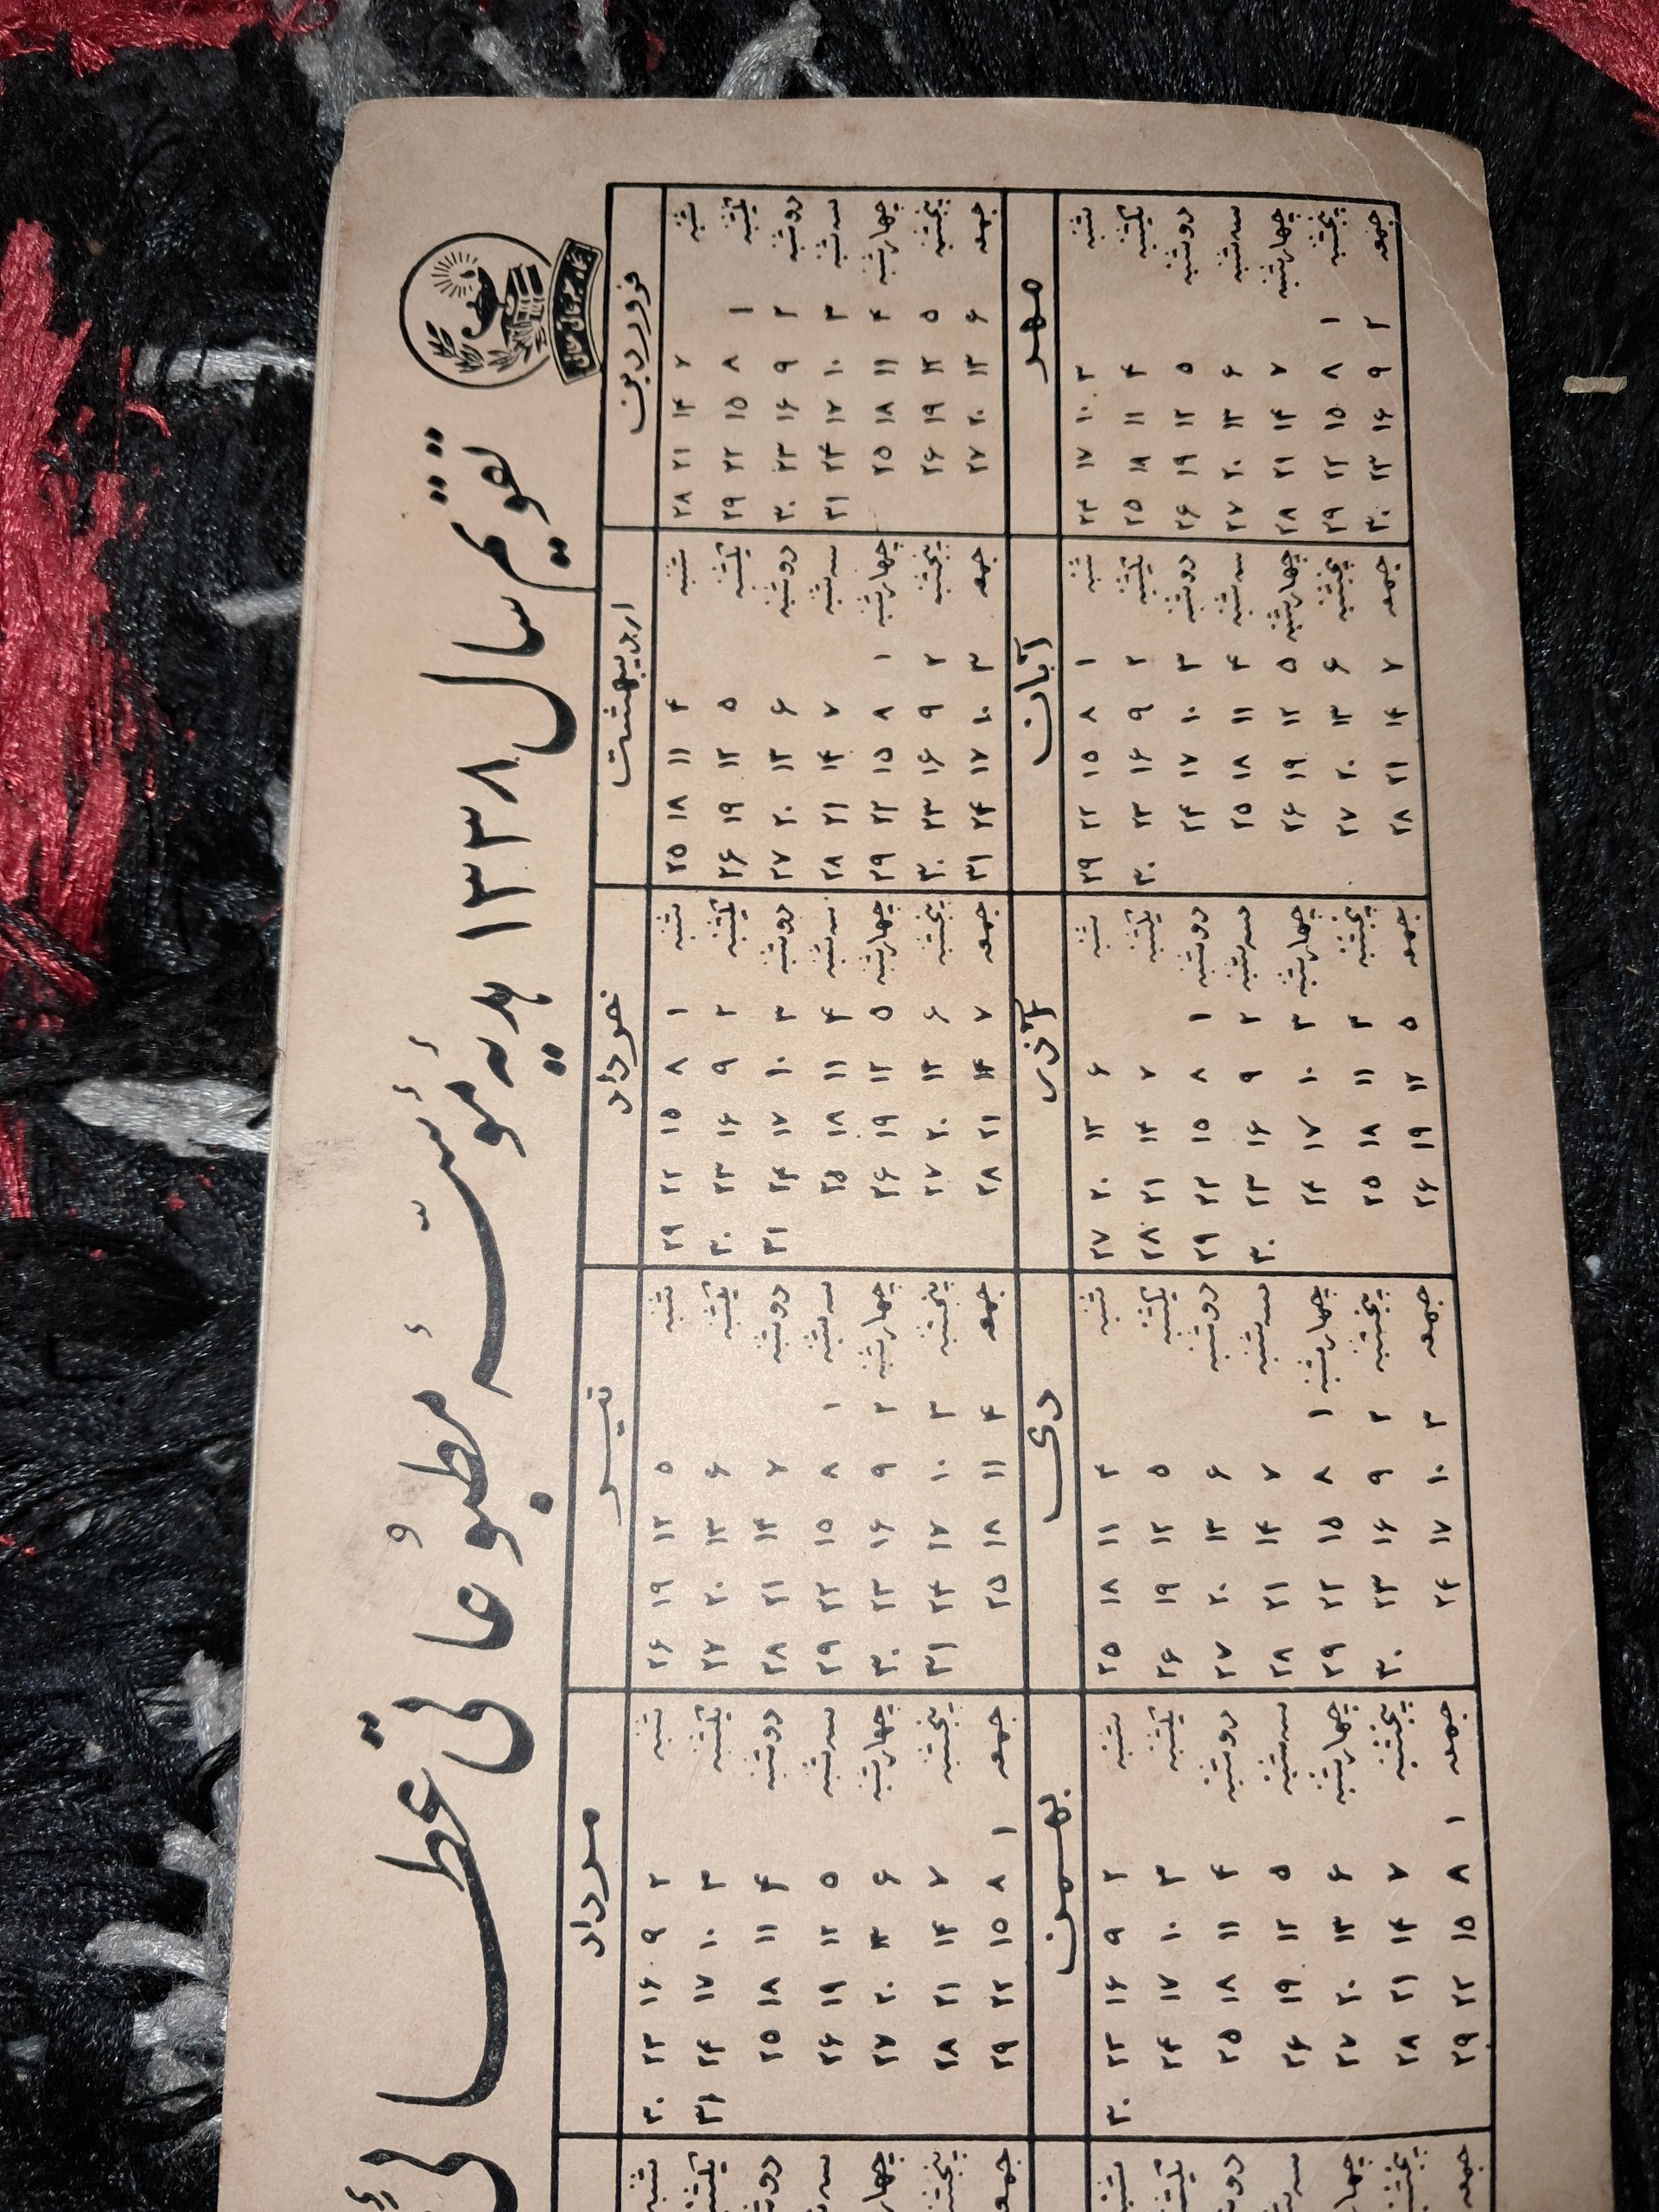 تقویم سال ۱۳۳۸ هدیه مؤسّسهٔ مطبوعاتی عطائی
فروردین
شنبه ۷ ۱۴ ۲۱ ۲۸
یکشنبه ۱ ۸ ۱۵ ۲۲ ۲۹
دوشنبه ۲ ۹ ۱۶ ۲۳ ۳۰
سه شنبه ۳ ۱۰ ۱۷ ۲۴ ۳۱
چهارشنبه ۴ ۱۱ ۱۸ ۲۵
پنجشنبه ۵ ۱۲ ۱۹ ۲۶
جمعه ۶ ۱۳ ۲۰ ۲۷
اردیبهشت
شنبه ۴ ۱۱ ۱۸ ۲۵
یکشنبه ۵ ۱۲ ۱۹ ۲۶
دوشنبه ۶ ۱۳ ۲۰ ۲۷
سه شنبه ۷ ۱۴ ۲۱ ۲۸
چهارشنبه ۱ ۸ ۱۵ ۲۲ ۲۹
پنجشنبه ۲ ۹ ۱۶ ۲۳ ۳۰
جمعه ۳ ۱۰ ۱۷ ۲۴ ۳۱
خرداد
شنبه ۱ ۸ ۱۵ ۲۲ ۲۹
یکشنبه ۲ ۹ ۱۶ ۲۳ ۳۰
دوشنبه ۳ ۱۰ ۱۷ ۲۴ ۳۱
سه شنبه ۴ ۱۱ ۱۸ ۲۵
چهارشنبه ۵ ۱۲ ۱۹ ۲۶
پنجشنبه ۶ ۱۳ ۲۰ ۲۷
جمعه ۷ ۱۴ ۲۱ ۲۸
تیر
شنبه ۵ ۱۲ ۱۹ ۲۶
یکشنبه ۶ ۱۳ ۲۰ ۲۷
دوشنبه ۷ ۱۴ ۲۱ ۲۸
سه شنبه ۱ ۸ ۱۵ ۲۲ ۲۹
چهارشنبه ۲ ۹ ۱۶ ۲۳ ۳۰
پنجشنبه ۳ ۱۰ ۱۷ ۲۴ ۳۱
جمعه ۴ ۱۱ ۱۸ ۲۵
مرداد
شنبه ۲ ۹ ۱۶ ۲۳ ۳۰
یکشنبه ۳ ۱۰ ۱۷ ۲۴ ۳۱
دوشنبه ۴ ۱۱ ۱۸ ۲۵
سه شنبه ۵ ۱۲ ۱۹ ۲۶
چهارشنبه ۶ ۱۳ ۲۰ ۲۷
پنجشنبه ۷ ۱۴ ۲۱ ۲۸
جمعه ۱ ۸ ۱۵ ۲۲ ۲۹
شنبه
یکشنبه
پنجشنبه
جمعه
مهر
شنبه ۳ ۱۰ ۱۷ ۲۴
یکشنبه ۴ ۱۱ ۱۸ ۲۵
دوشنبه ۵ ۱۲ ۱۹ ۲۶
سه شنبه ۶ ۱۳ ۲۰ ۲۷
چهارشنبه ۷ ۱۴ ۲۱ ۲۸
پنجشنبه ۱ ۸ ۱۵ ۲۲ ۲۹
جمعه ۲ ۹ ۱۶ ۲۳ ۳۰
آبان
شنبه ۱ ۸ ۱۵ ۲۲ ۲۹
یکشنبه ۲ ۹ ۱۶ ۲۳ ۳۰
دوشنبه ۳ ۱۰ ۱۷ ۲۴
سه شنبه ۴ ۱۱ ۱۸ ۲۵
چهارشنبه ۵ ۱۲ ۱۹ ۲۶
پنجشنبه ۶ ۱۳ ۲۰ ۲۷
جمعه ۷ ۱۴ ۲۱ ۲۸
آذر
شنبه ۶ ۱۳ ۲۰ ۲۷
یکشنبه ۷ ۱۴ ۲۱ ۲۸
دوشنبه ۱ ۸ ۱۵ ۲۲ ۲۹
سه شنبه ۲ ۹ ۱۶ ۲۳ ۳۰
چهارشنبه ۳ ۱۰ ۱۷ ۲۴
پنجشنبه ۴ ۱۱ ۱۸ ۲۵
جمعه ۵ ۱۲ ۱۹ ۲۶
دی
شنبه ۴ ۱۱ ۱۸ ۲۵
یکشنبه ۵ ۱۲ ۱۹ ۲۶
دوشنبه ۶ ۱۳ ۲۰ ۲۷
سه شنبه ۷ ۱۴ ۲۱ ۲۸
چهارشنبه ۱ ۸ ۱۵ ۲۲ ۲۹
پنجشنبه ۲ ۹ ۱۶ ۲۳ ۳۰
جمعه ۳ ۱۰ ۱۷ ۲۴
بهمن
شنبه ۲ ۹ ۱۶ ۲۳ ۳۰
یکشنبه ۳ ۱۰ ۱۷ ۲۴
دوشنبه ۴ ۱۱ ۱۸ ۲۵
سه شنبه ۵ ۱۲ ۱۹ ۲۶
چهارشنبه ۶ ۱۳ ۲۰ ۲۷
پنجشنبه ۷ ۱۴ ۲۱ ۲۸
جمعه ۱ ۸ ۱۵ ۲۲ ۲۹
شنبه
یکشنبه
پنجشنبه
جمعه